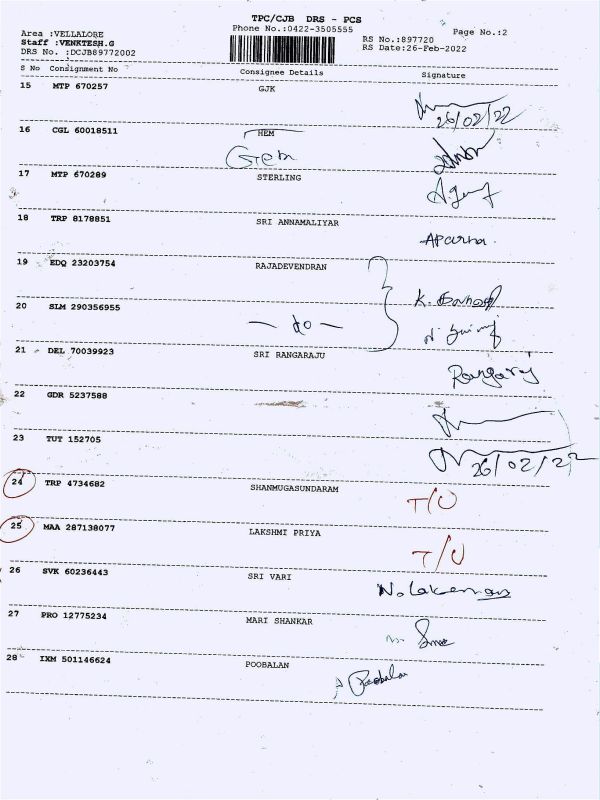 TPC/CJB DRS - PCS
Area :VELLALORE Phone No.:0422-3505555 Page No.:2
Staff :VENKTESH.G RS No.:897720
DRS No. :DCJB89772002 RS Date:26-Feb-2022
S No Consignment No Consignee Details Signature
15 MTP 670257 GJK
26/02/22
16 CGL 60018511 HEM
Gem
17 MTP 670289 STERLING
18 TRP 8178851 SRI ANNAMALIYAR
Aparna
19 EDQ 23203754 RAJADEVENDRAN
20 SLM 290356955
— do —
21 DEL 70039923 SRI RANGARAJU
Rangaraj
22 GDR 5237588
23 TUT 152705
26/02/22
24 TRP 4734682 SHANMUGASUNDARAM
T/U
25 MAA 287138077 LAKSHMI PRIYA
T/U
26 SVK 60236443 SRI VARI
27 PRO 12775234 MARI SHANKAR
28 IXM 501146624 POOBALAN
Poobalan